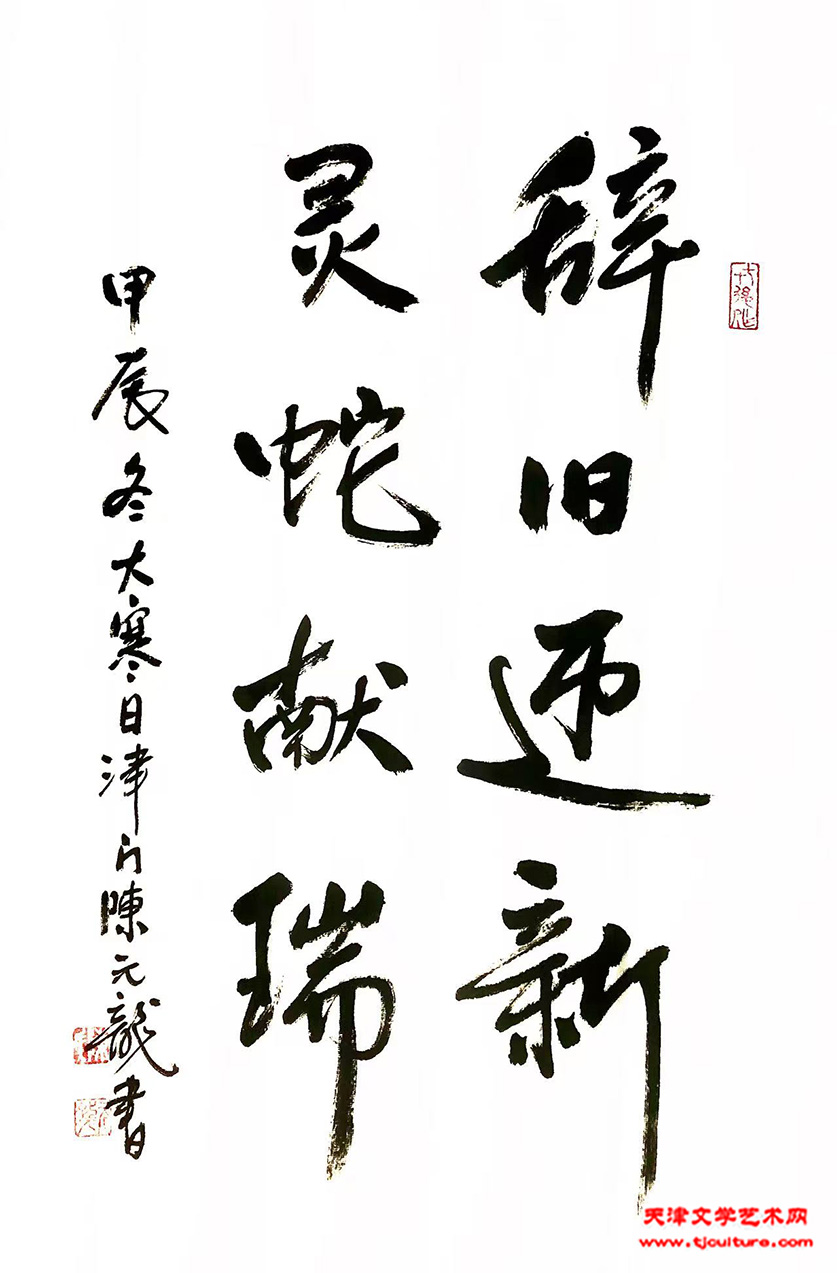 辞旧迎新
灵蛇献瑞
甲辰冬大寒日津门陈元龍书
天津文学艺术网
www.tjculture.com